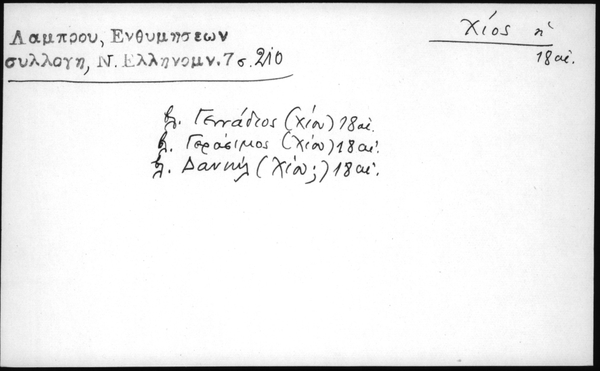 Λαμπρου, Ενθυμησεων
συλλογη, Ν. Ελληνομν. 7 σ. 210
Χίος η'
18 αἰ.
βλ. Γεννάδιος (Χίου) 18 αἰ.
βλ. Γεράσιμος (Χίου) 18 αἰ.
βλ. Δανιήλ (Χίου;) 18 αἰ.